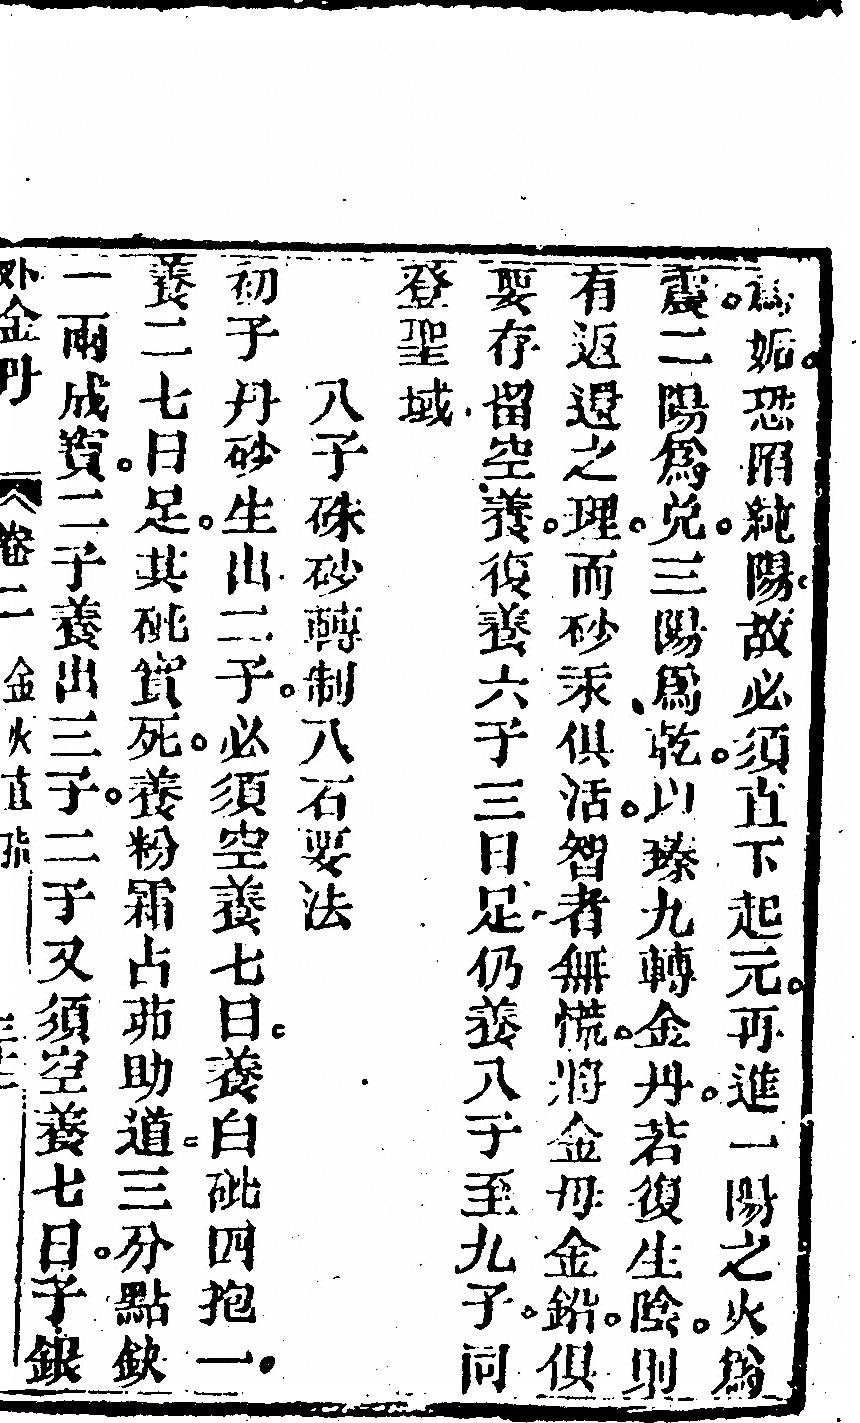 爲姤。恐陷純陽。故必須直下起元。再進一陽之火爲
震。二陽爲兌。三陽爲乾。以臻九轉金丹。若復生陰。則
有返還之理。而砂汞俱活。智者無慌。將金母金鉛。俱
要存留空養。復養六子三日足。仍養八子至九子。同
登聖域。
八子硃砂轉制八石要法
初子丹砂生出二子。必須空養七日。養白砒四抱一。
養二七日足。其砒實死。養粉霜占茆助道。三分點鈌
一兩成寳。二子養出三子。二子又須空養七日。子銀
外金丹 卷二 金火直指